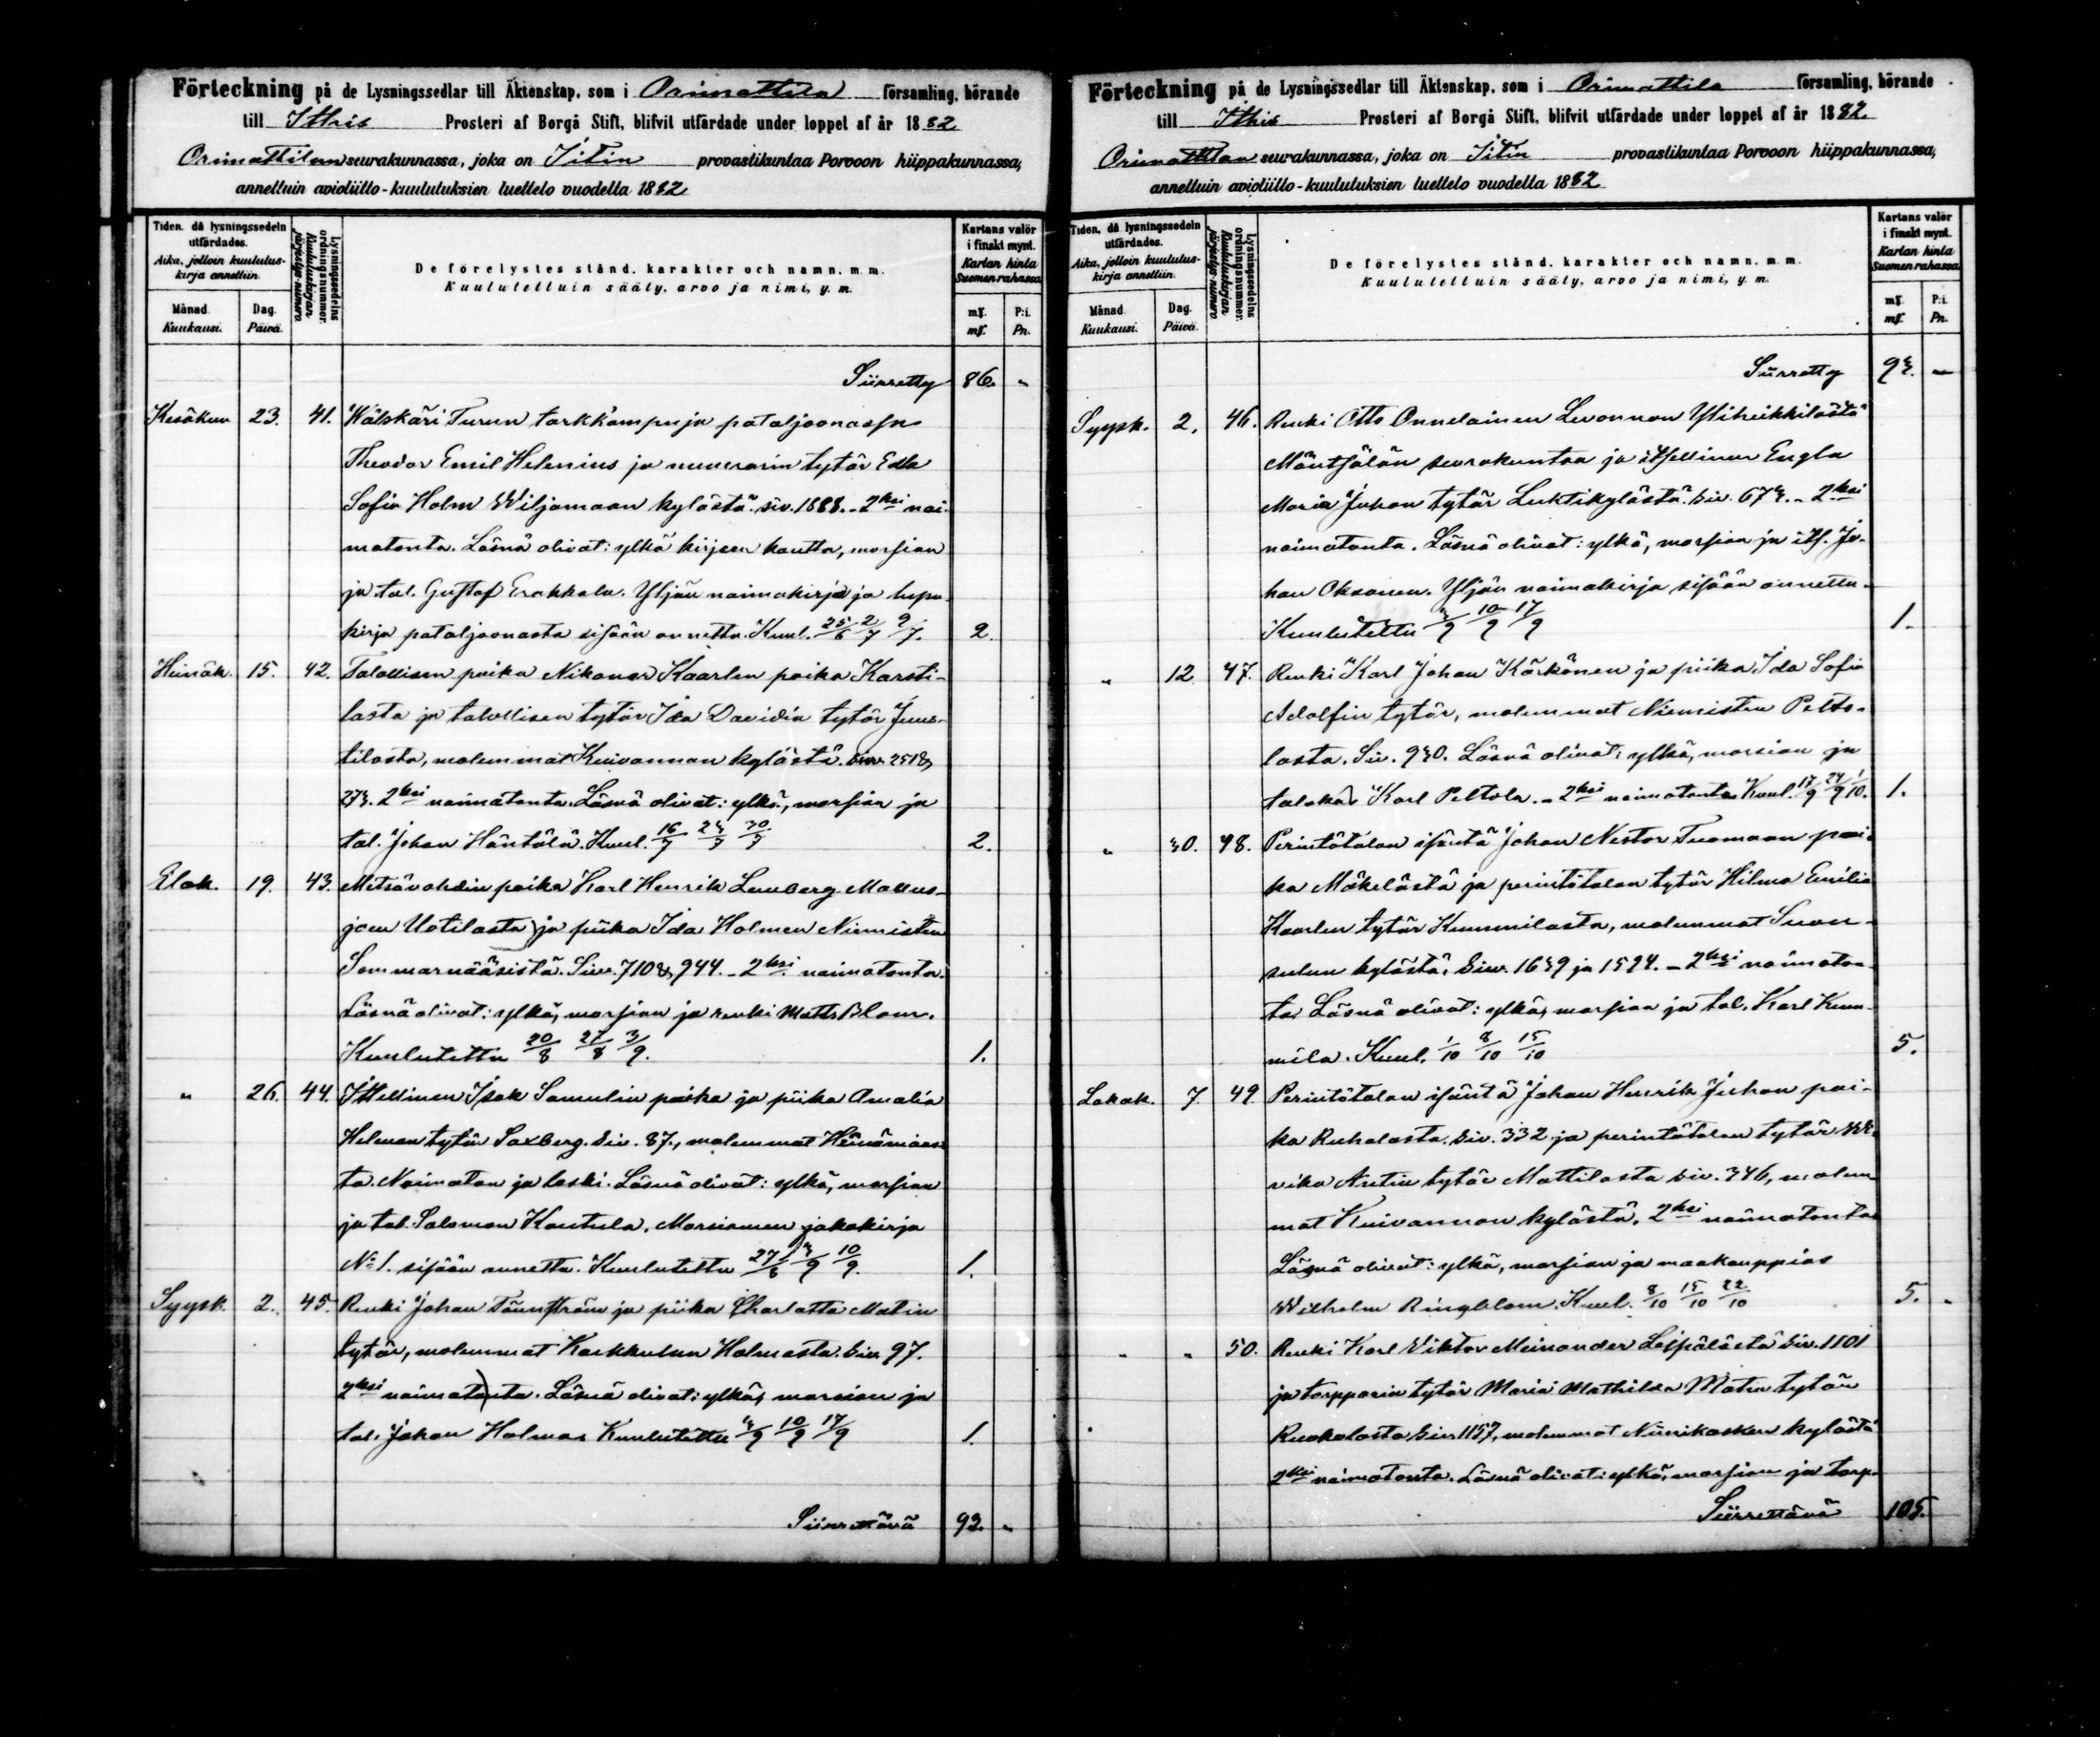 Förteckning på de Lysningssedlar till Äktenskap, som i Orimattila församling, hörande
till Ithis Prosteri af Borgå Stift, blifvit utfärdade under loppet af år 1882
Orimattilan seurakunnassa, joka on Iitin provastikuntaa Porvoon hiippakunnassa,
annettuin avioliitto-kuulutuksien luettelo vuodella 1882
Tiden, då lysningssedeln utfärdades.
Aika, jolloin kuulutus-kirja annettiin.
Månad. Kuukausi.
Dag. Päivä.
Lysningssedelns ordningsnummer.
Kuulutuskirjan järjestys-numero
De förelystes stånd, karakter och namn, m. m.
Kuulutettuin sääty, arvo ja nimi, y. m.
Kartans valör i finskt mynt.
Kartan hinta Suomen rahassa
mk. P:i.
mk. Pn.
Siirretty 86. "
Kesäkuu 23. 41. Wälskäri Turun tarkk'ampuja pataljoonassa
Theodor Emil Helenius ja nuurarin tytär Edla
Sofia Holm Wiljamaan kylästä. siv. 1888. - 2ksi nai-
matonta. Läsnä olivat: ylkä kirjeen kautta, morsian
ja tal. Gustaf Erakkala. Yljän naimakirja ja lupa-
kirja pataljoonasta sisään annettu. Kuul. 25/6 2/7 9/7. 2.
Heinäk. 15. 42. Talollisen poika Nikanor Kaarlen poika Karsti-
lasta ja talollisen tytär Ida Davidin tytär Juus-
tilasta, molemmat Kuivannan kylästä. Siv. 251 &
273. 2ksi naimatonta. Läsnä olivat: ylkä, morsian ja
tal. Johan Häntälä. Kuul. 16/7 23/7 30/7 2.
Elok. 19. 43. Metsävahdin poika Karl Henrik Lunberg Mallus-
joen Uotilasta ja piika Ida Holmen Niemisten
Sommarnääsistä. Siv. 710 & 944. - 2ksi naimatonta.
Läsnä olivat: ylkä, morsian ja renki Matts Blom.
Kuulutettu 20/8 27/8 3/9. 1.
" 26. 44. Itsellinen Isak Samulin poika ja piika Amalia
Helenan tytär Saxberg. Siv. 87., molemmat Heinämaas-
ta. Naimaton ja leski. Läsnä olivat: ylkä, morsian
ja tal. Salomon Kautula. Morsiamen jakokirja
No 1. sisään annettu. Kuulutettu 27/8 3/9 10/9. 1.
Syysk. 2. 45. Renki Johan Tännström ja piika Charlotta Matin
tytär, molemmat Karkkulan Holmasta. Siv. 97.
2ksi naimatonta. Läsnä olivat: ylkä, morsian ja
tal. Johan Holmas Kuulutettu 3/9 10/9 17/9 1.
Siirrettävä 93. "
Förteckning på de Lysningssedlar till Äktenskap, som i Orimattila församling, hörande
till Ithis Prosteri af Borgå Stift, blifvit utfärdade under loppet af år 1882.
Orimattilan seurakunnassa, joka on Iitin provastikuntaa Porvoon hiippakunnassa,
annettuin avioliitto-kuulutuksien luettelo vuodella 1882
Tiden, då lysningssedeln utfärdades.
Aika, jolloin kuulutus-kirja annettiin.
Månad. Kuukausi.
Dag. Päivä.
Lysningssedelns ordningsnummer.
Kuulutuskirjan järjestys-numero
De förelystes stånd, karakter och namn, m. m.
Kuulutettuin sääty, arvo ja nimi, y. m.
Kartans valör i finskt mynt.
Kartan hinta Suomen rahassa
mk. P:i.
mk. Pn.
Siirretty 93. -
Syysk. 2. 46. Renki Otto Onnelainen Levannon Yliheikkilästä
Mäntsälän seurakuntaa ja itsellinen Engla
Maria Juhon tytär Luhtikylästä. Siv. 673. - 2ksi
naimatonta. Läsnä olivat: ylkä, morsian ja its. Jo-
han Oksanen. Yljän naimakirja sisään annettu.
Kuulutettu 3/9 10/9 17/9 1.
" 12 47. Renki Karl Johan Körkönen ja piika Ida Sofia
Adolfin tytär, molemmat Niemisten Pelto-
lasta. Siv. 930. Läsnä olivat: ylkä, morsian ja
talokas Karl Peltola. - 2ksi naimatonta Kuul. 17/9 24/9 1/10. 1.
" 30. 48. Perintötalon isäntä Johan Nestor Tuomaan poi-
ka Mäkelästä ja perintötalon tytär Hilma Emilia
Kaarlen tytär Kummilasta, molemmat
kylästä. Siv. 1639 ja 1594. - 2ksi naimaton-
ta. Läsnä olivat: ylkä, morsian ja tal. Karl Kum-
mila. Kuul. 1/10 8/10 15/10 5.
Lokak. 7. 49. Perintötalon isäntä Johan Henrik Juhon poi-
ka Ruhalasta. Siv. 332 ja perintötalon tytär Wil-
vika Antin tytär Mattilasta siv. 346, molem-
mat Kuivannon kylästä. 2ksi naimatonta
Läsnä olivat: ylkä, morsian ja maakauppias
Wilhelm Ringblom. Kuul. 8/10 15/10 22/10 5. "
" " 50. Renki Karl Viktor Meinander Leppälästä siv. 1101
ja torpparin tytär Maria Mathilda Matin tytär
Ruokolasta siv. 1157, molemmat Niinikosken kylästä
2ksi naimatonta. Läsnä olivat: ylkä, morsian ja torp-
Siirrettävä 105.